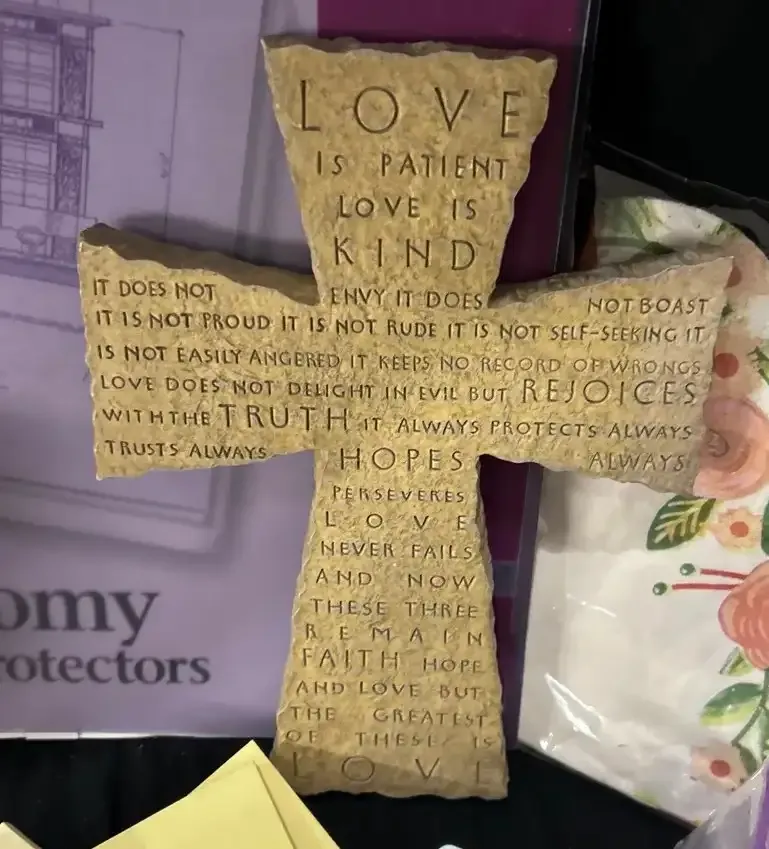 LOVE
IS PATIENT
LOVE IS
KIND
IT DOES NOT ENVY IT DOES NOT BOAST
IT IS NOT PROUD IT IS NOT RUDE IT IS NOT SELF-SEEKING IT
IS NOT EASILY ANGERED IT KEEPS NO RECORD OF WRONGS
LOVE DOES NOT DELIGHT IN EVIL BUT REJOICES
WITH THE TRUTH IT ALWAYS PROTECTS ALWAYS
TRUSTS ALWAYS HOPES ALWAYS
PERSEVERES
LOVE
NEVER FAILS
AND NOW
THESE THREE
REMAIN
FAITH HOPE
AND LOVE BUT
THE GREATEST
OF THESE IS
LOVE
omy
rotectors